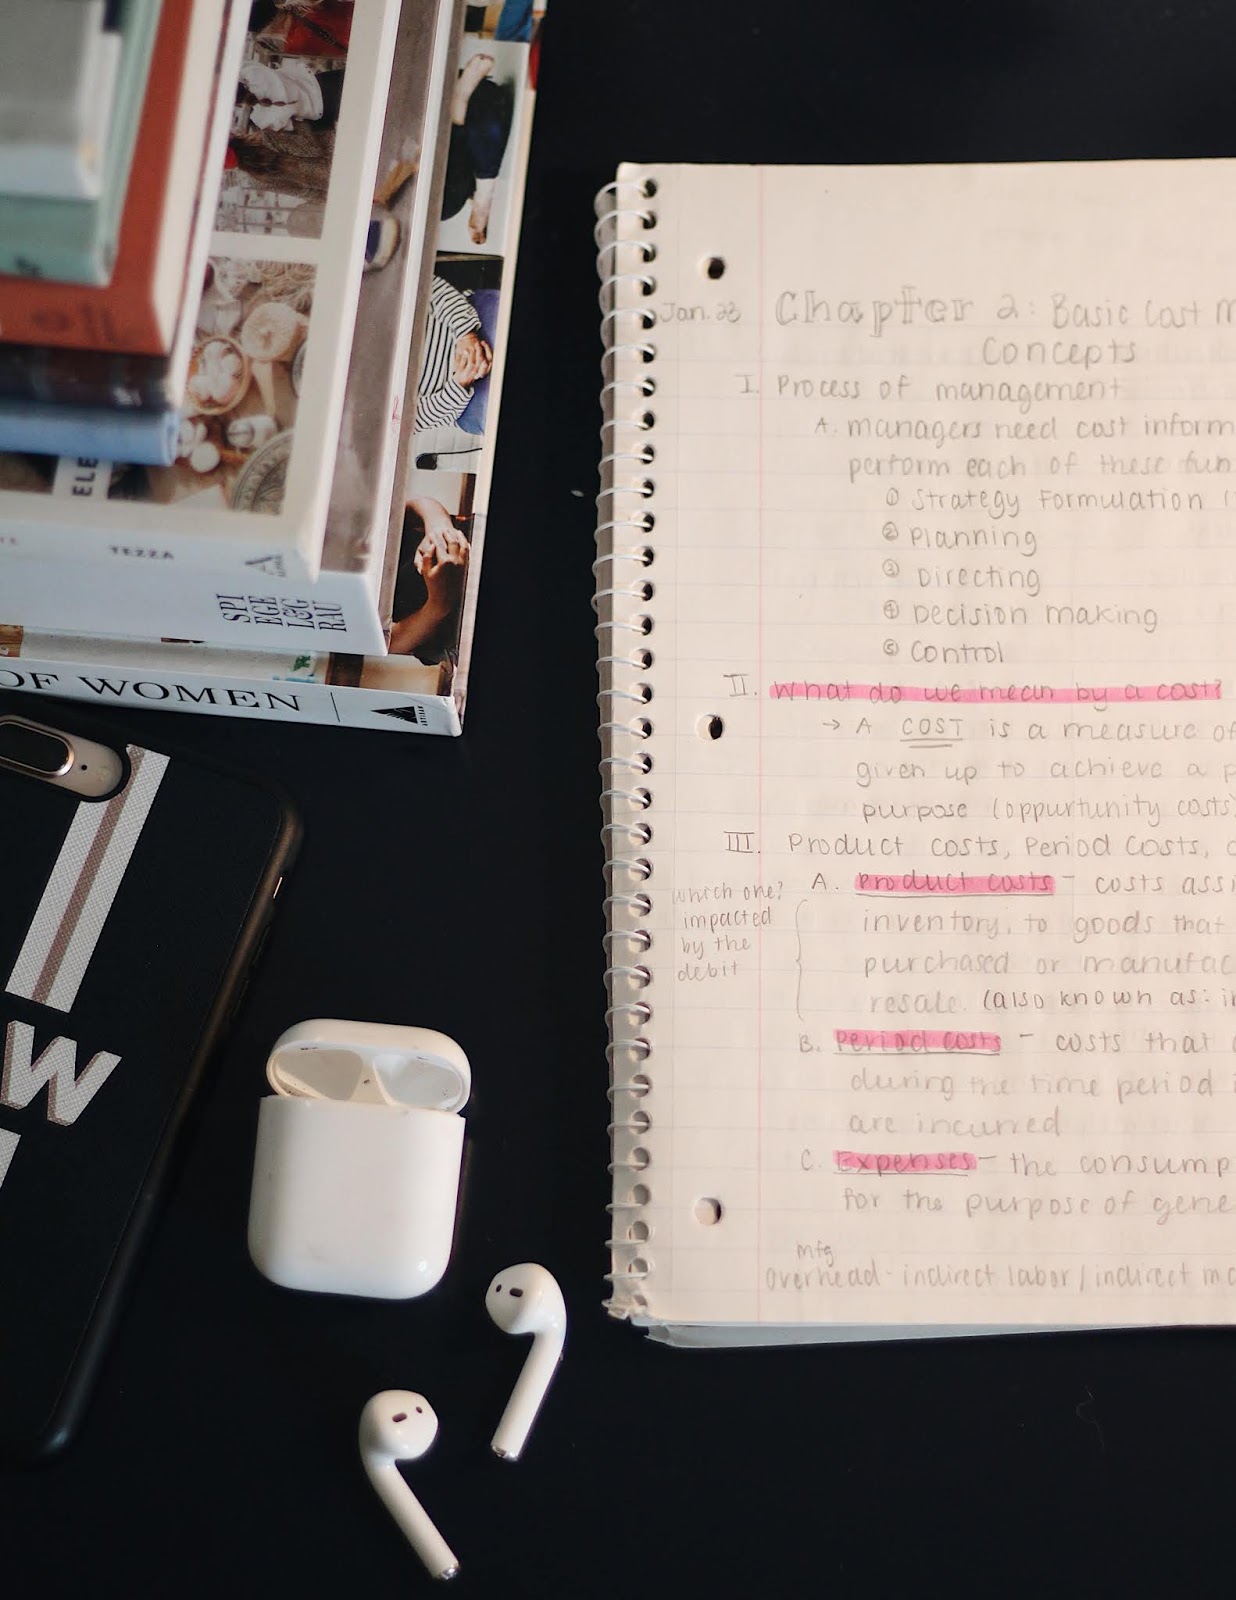 ELE
TEZZA
SPI
EGE
L&G
RAU
OF WOMEN
ARTISAN
W
Jan. 23
Chapter 2: Basic Cost M
Concepts
I. Process of management
A. managers need cost inform
perform each of these fun
① Strategy Formulation (
② Planning
③ Directing
④ Decision making
⑤ Control
II. What do we mean by a cost?
→ A COST is a measure of
given up to achieve a p
purpose (oppurtunity costs)
III. Product costs, Period Costs,
A. Product costs - costs assi
inventory, to goods that
purchased or manufac
resale. (also known as: in
which one?
impacted
by the
debit
B. Period costs - costs that
during the time period i
are incurred
C. Expenses - the consump
for the purpose of gene
mfg
overhead - indirect labor / indirect ma